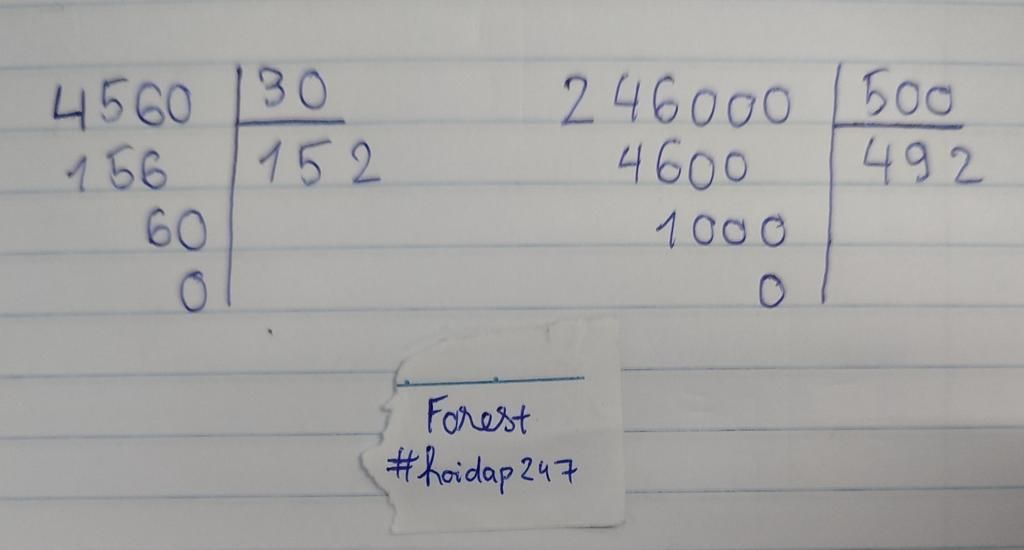 4560 30
156 152
60
0
246000 500
4600 492
1000
0
Forest
#hoidap247